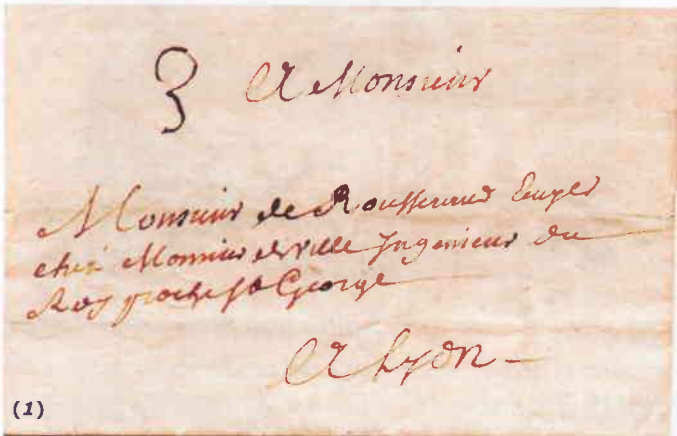 3 A Monsieur
Monsieur de
chez Monsieur de ville Ingenieur du
Roy proche St George
A Lyon
(1)